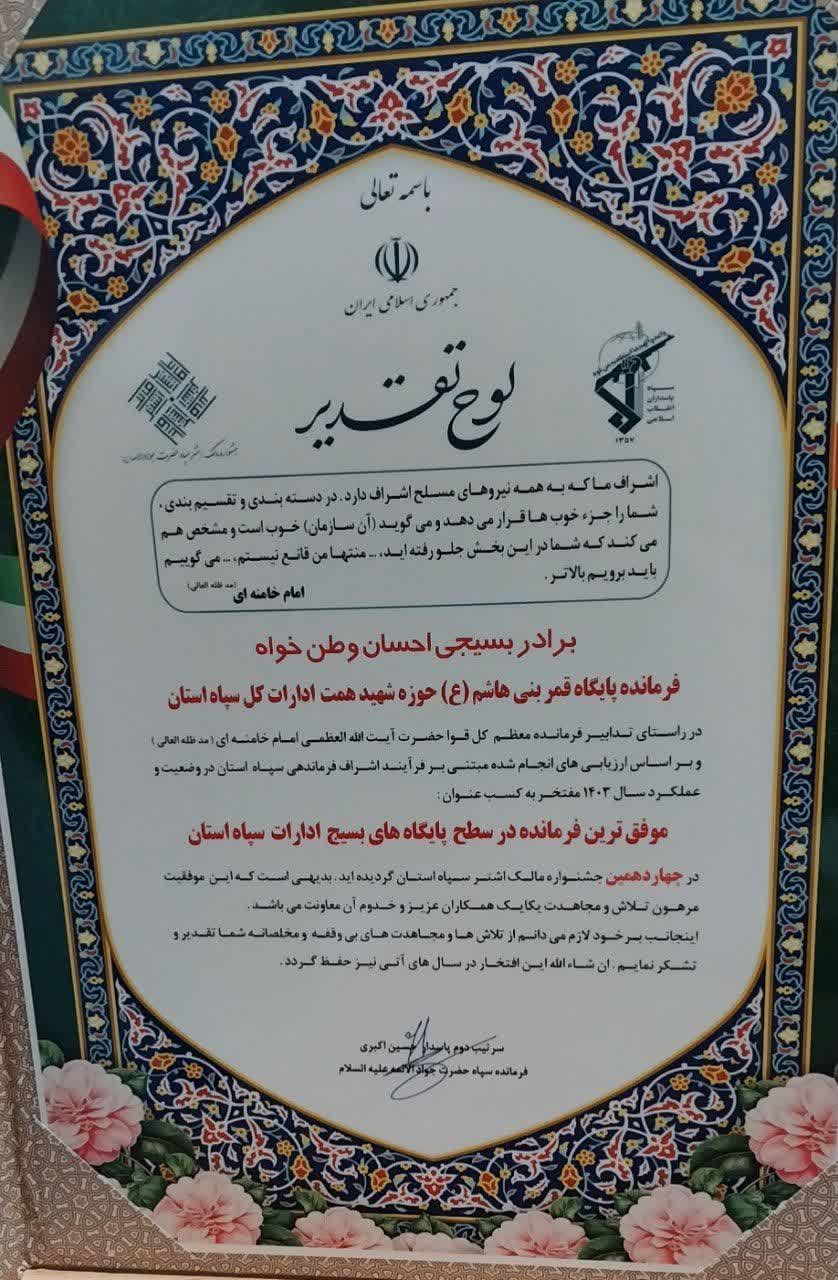 باسمه تعالی
جمهوری اسلامی ایران
لوح تقدیر
سپاه
پاسداران
انقلاب
اسلامی
۱۳۵۷
اشراف ما که به همه نیروهای مسلح اشراف دارد. در دسته بندی و تقسیم بندی،
شما را جزء خوب ها قرار می دهد و می گوید (آن سازمان) خوب است و مشخص هم
می کند که شما در این بخش جلو رفته اید، ... منتها من قانع نیستم، ... می گوییم
باید برویم بالاتر.
امام خامنه ای (مد ظله العالی)
برادر بسیجی احسان وطن خواه
فرمانده پایگاه قمر بنی هاشم (ع) حوزه شهید همت ادارات کل سپاه استان
در راستای تدابیر فرمانده معظم کل قوا حضرت آیت الله العظمی امام خامنه ای (مد ظله العالی)
و بر اساس ارزیابی های انجام شده مبتنی بر فرآیند اشراف فرماندهی سپاه استان در وضعیت و
عملکرد سال ۱۴۰۳ مفتخر به کسب عنوان:
موفق ترین فرمانده در سطح پایگاه های بسیج ادارات سپاه استان
در چهاردهمین جشنواره مالک اشتر سپاه استان گردیده اید. بدیهی است که این موفقیت
مرهون تلاش و مجاهدت یکایک همکاران عزیز و خدوم آن معاونت می باشد.
اینجانب بر خود لازم می دانم از تلاش ها و مجاهدت های بی وقفه و مخلصانه شما تقدیر و
تشکر نمایم. ان شاءالله این افتخار در سال های آتی نیز حفظ گردد.
سرتیپ دوم پاسدار حسین اکبری
فرمانده سپاه حضرت جواد الائمه علیه السلام